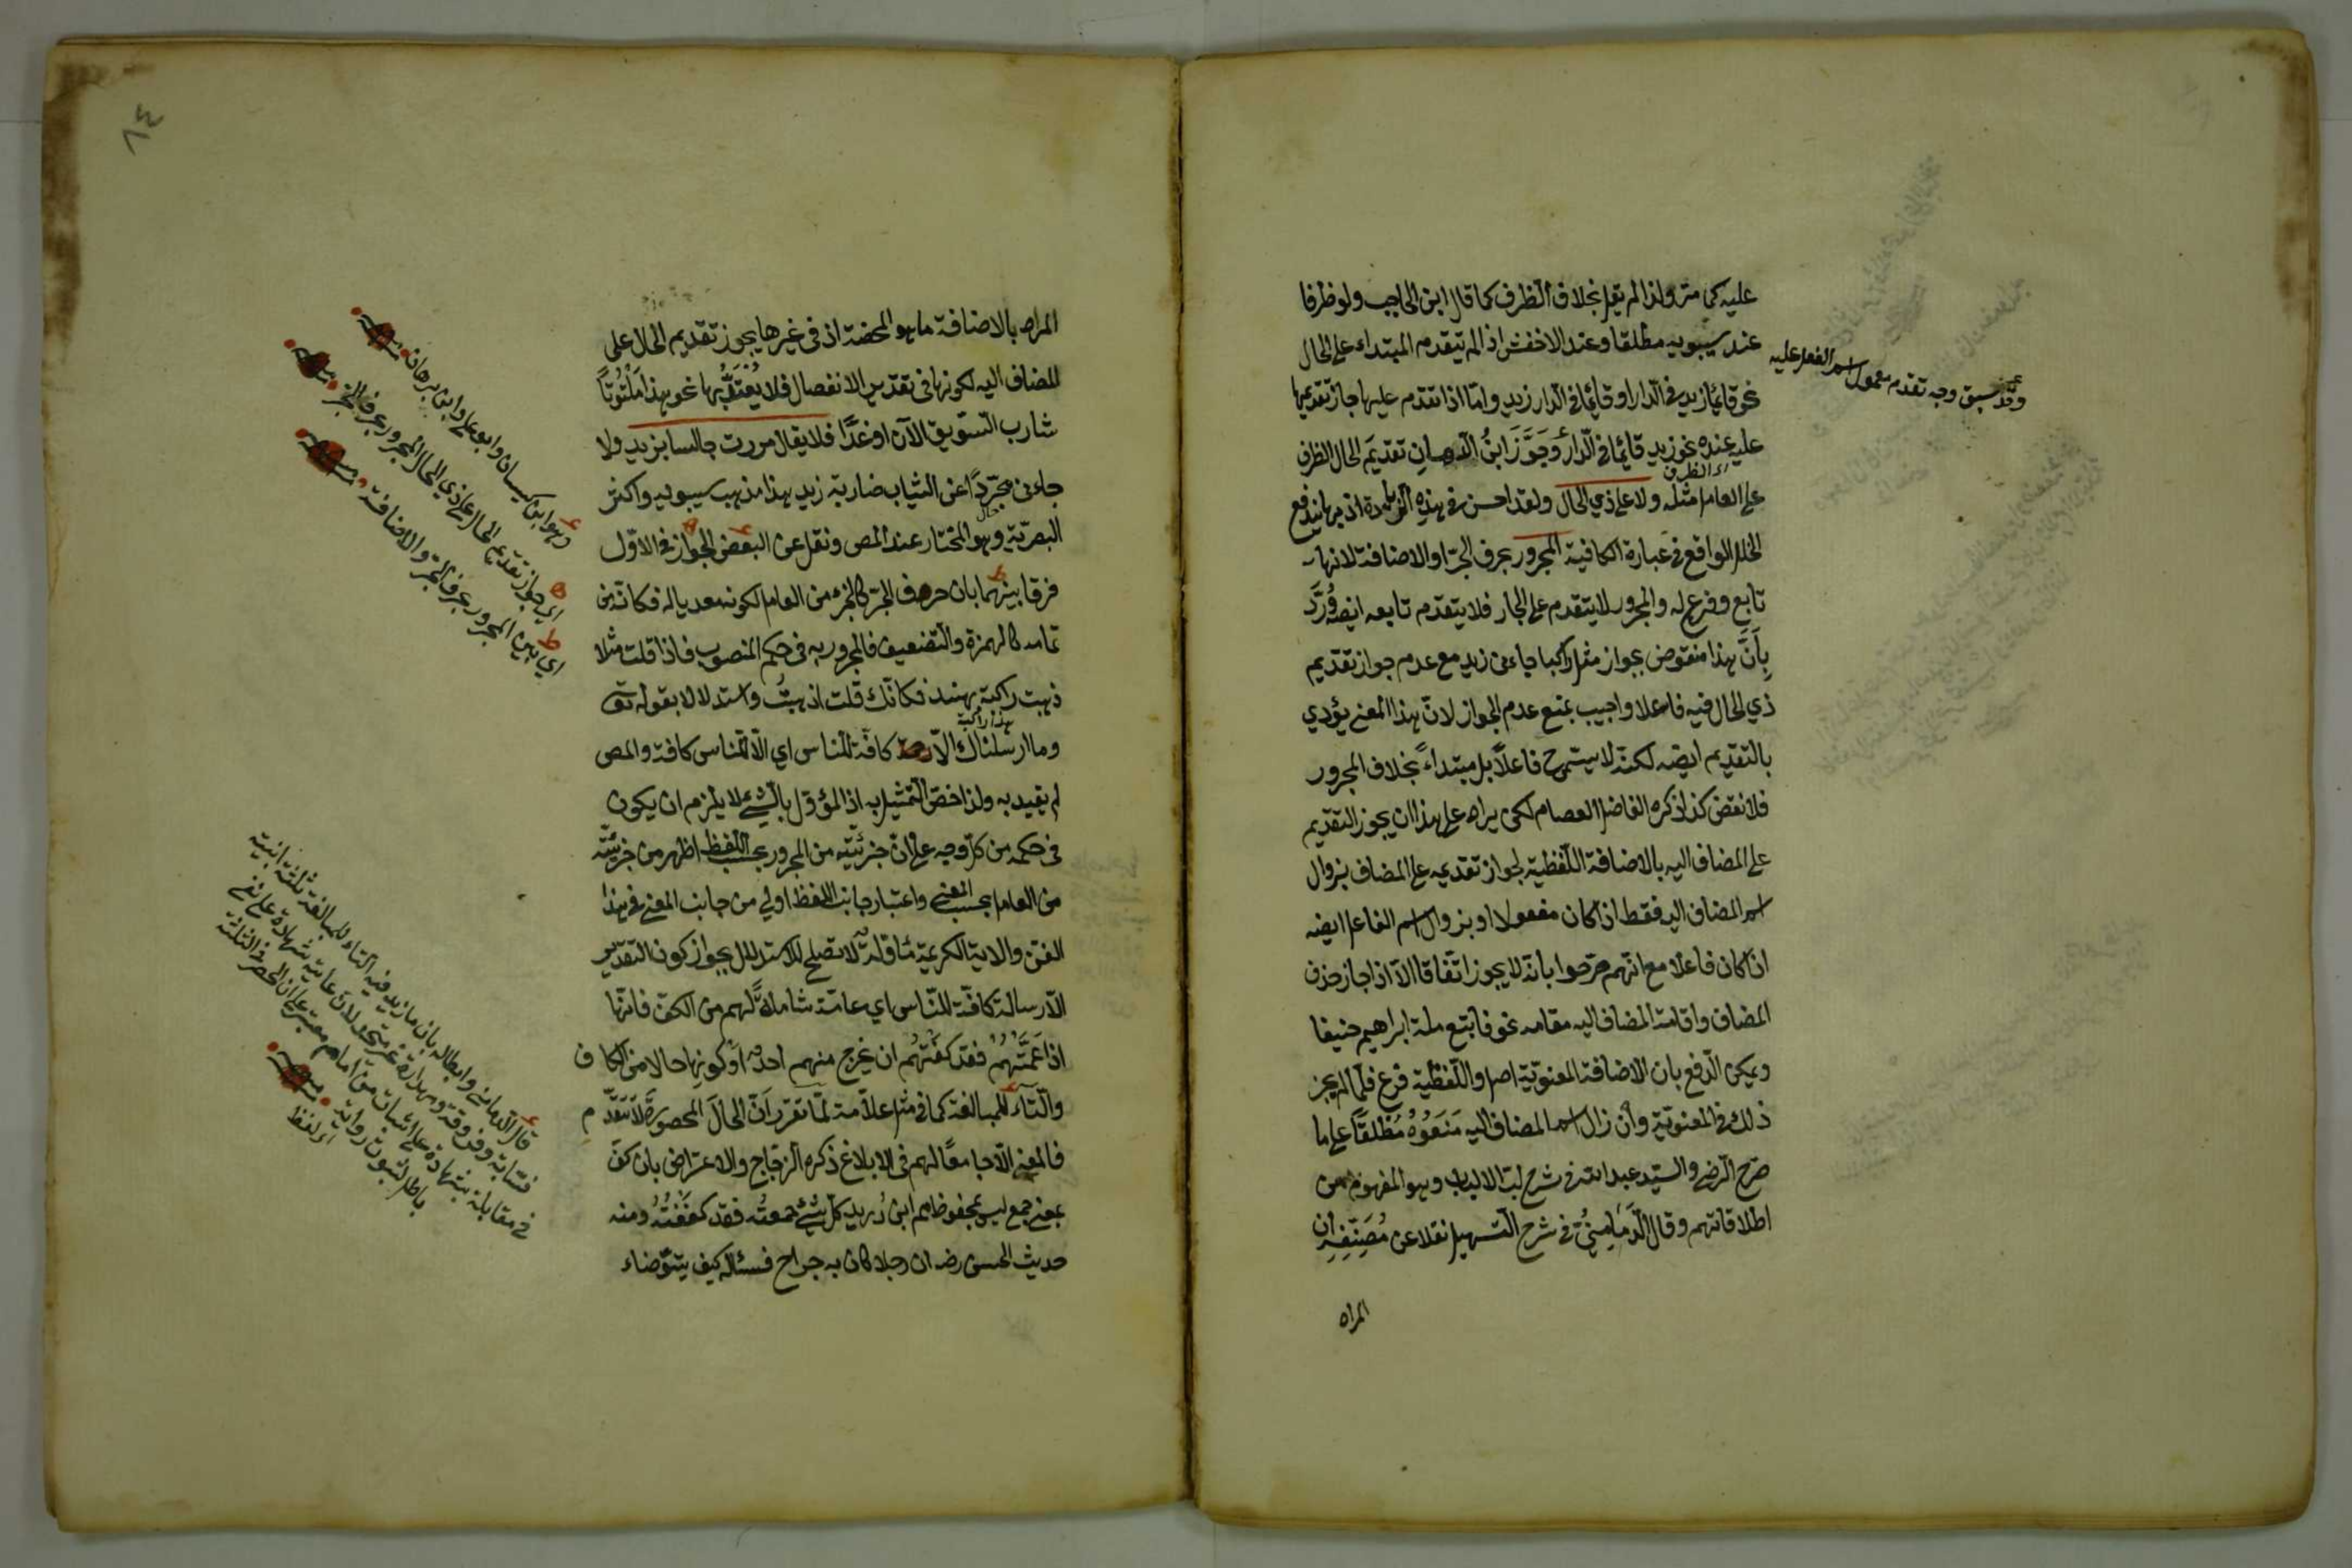 عليه كما مر ولذا لم يقل بخلاف الظرف كما قال ابن الحاجب ولو ظرفا
عند سيبويه مطلقا وعند الاخفش اذا لم يتقدم المبتداء على الحال
نحو قائما زيد في الدار او قائما في الدار زيد واما اذا تقدم عليها جاز تقديمها
عليه عنده نحو زيد قائما في الدار وجوز ابن الدهان تقديم الحال الظرف
اى الظرف
على العامل مثله ولا على ذي الحال ولقد احسن في هذه الزيادة اذ بها يندفع
الخلل الواقع في عبارة الكافية المجرور بحرف الجر او الاضافة لانها
تابع وفرع له والمجرور لا يتقدم على الجار فلا يتقدم تابعه ايضه ورد
بأن هذا منقوض بجواز مثل راكبا جاءني زيد مع عدم جواز تقديم
ذي الحال فيه فاعلا واجيب بمنع عدم الجواز لان هذا المعنى يؤدي
بالتقديم ايضه لكنه لا يسمى ح فاعلا بل مبتداء بخلاف المجرور
فلا نقض كذا ذكره الفاضل العصام لكن يراد على هذا ان يجوز التقديم
على المضاف اليه بالاضافة اللفظية لجواز تقديمه على المضاف بزوال
اسم المضاف اليه فقط اذا كان مفعولا او بزوال اسم الفاعل ايضه
اذا كان فاعلا مع انهم صرحوا بانه لا يجوز اتفاقا الا اذا جاز حذف
المضاف واقامة المضاف اليه مقامه نحو فاتبع ملة ابراهيم حنيفا
ويمكن الدفع بان الاضافة المعنوية اصل واللفظية فرع فلما لم يجز
ذلك في المعنوية وان زال اسم المضاف اليه منعوه مطلقا على ما
صرح الرضي والسيد عبد الله في شرح لب الالباب وهو المفهوم من
اطلاقاتهم وقال الدماميني في شرح التسهيل نقلا عن مصنفه ان
المراد
وقد سبق وجه تقدم معمول اسم الفعل عليه
٨٤
المراد بالاضافة ما هو المحضة اذ في غيرها يجوز تقديم الحال على
المضاف اليه لكونها في تقدير الانفصال فلا يعتد بها نحو هذا ملتوتا
شارب السويق الآن او غدا فلا يقال مررت جالسا بزيد ولا
جاءني مجردا عن الثياب ضاربة زيد هذا مذهب سيبويه واكثر
البصرية وهو المختار عند المص ونقل عن البعض الجواز في الاول
فرقا بينهما بان حرف الجر كالجزء من العامل لكونه معديا له فكانه من
تمامه كالهمزة والتضعيف فالمجرور به في حكم المنصوب فاذا قلت مثلا
ذهبت راكبة بهند فكانك قلت اذهبت واستدلالا بقوله تع
هندا راكبة
وما ارسلناك الا كافة للناس اي الا للناس كافة والمص
لم يقيد به ولذا خص التمثيل به اذ المؤول بالشيء لا يلزم ان يكون
في حكمه من كل وجه على ان جزئيته من المجرور بحسب اللفظ اظهر من جزئيته
من العامل بحسب المعنى واعتبار جانب اللفظ اولى من جانب المعنى في هذا
الفن والاية الكريمة لا تصلح للاستدلال بجواز كون التقدير
الا رسالة كافة للناس اي عامة شاملة لهم من الكف فانها
اذا عمتهم فقد كفتهم ان يخرج منهم احد او كونها حالا من الكاف
والتاء للمبالغة كما في مثل علامة لما تقرر ان الحال المحصور لا يتقدم
فالمعنى الا جامعا لهم في الابلاغ ذكره الزجاج والاعتراض بان كف
بمعنى جمع ليس بمحفوظ ابن دريد كل شيء جمعته فقد كففته ومنه
حديث الحسن رضه ان رجلا كان به جراح فسئاله كيف يتوضاء
وهو ابن كيسان وابو علي وابن برهان
اي جواز تقديم الحال على ذي الحال المجرور بحرف الجر
اي بين المجرور بحرف الجر والاضافة
قال الدماميني وابطاله بان ما زيد فيه التاء للمبالغة ثلثة ابنية
في مقابلة شهادة على اثبات من امام معتبر على ان الحصر في الثلثة
باطل لثبوت رواية
اى لفظ